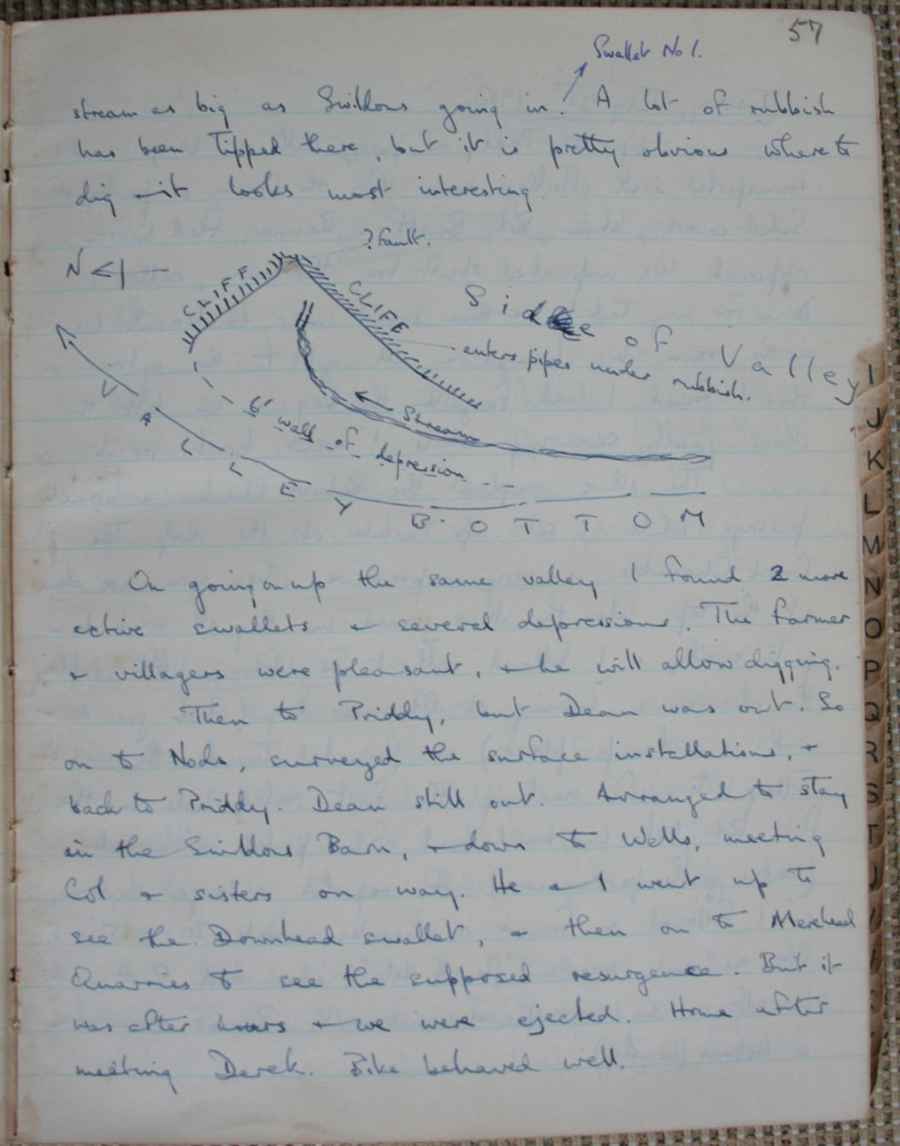 57
Swallet No 1.
stream as big as Swildons going in! A lot of rubbish
has been tipped there, but it is pretty obvious where to
dig – it looks most interesting.
? Fault.
N
CLIFF
CLIFF
Side of Valley
enters pipes under rubbish.
Stream
6' wall of depression
VALLEY BOTTOM
On going on up the same valley I found 2 more
active swallets + several depressions. The farmer
+ villagers were pleasant, + he will allow digging.
Then to Priddy, but Dean was out. So
on to Nods, surveyed the surface installations, +
back to Priddy. Dean still out. Arranged to stay
in the Swildons Barn, + down to Wells, meeting
Col + sisters on way. He + I went up to
see the Downhead swallet, + then on to Merehead
Quarries to see the supposed resurgence. But it
was after hours + we were ejected. Home after
meeting Derek. Bike behaved well.
I
J
K
L
M
N
O
P
Q
R
S
T
U